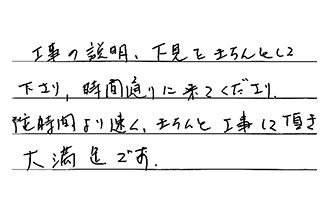 工事の説明、下見をきちんとして
下さり、時間通りに来てくださり、
時間より速く、きちんと工事して頂き
大満足です。